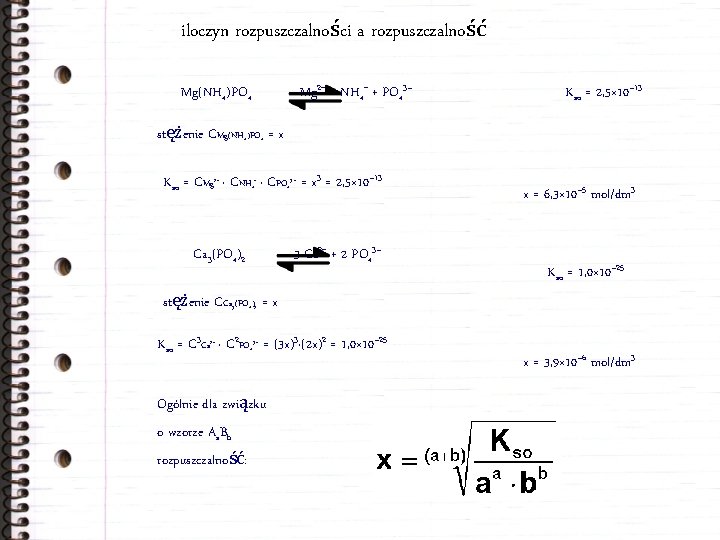 iloczyn rozpuszczalności a rozpuszczalność
Mg(NH₄)PO₄ ⇌ NH₄⁺ + PO₄³⁻ Kₛₒ = 2,5×10⁻¹³
stężenie C_Mg(NH₄)PO₄ = x
Kₛₒ = C_Mg²⁺ · C_NH₄⁺ · C_PO₄³⁻ = x³ = 2,5×10⁻¹³
x = 6,3×10⁻⁵ mol/dm³
Ca₃(PO₄)₂ ⇌ + 2 PO₄³⁻
Kₛₒ = 1,0×10⁻²⁵
stężenie = x
Kₛₒ = C³_Ca²⁺ · C²_PO₄³⁻ = (3x)³·(2x)² = 1,0×10⁻²⁵
x = 3,9×10⁻⁶ mol/dm³
Ogólnie dla związku
o wzorze AₐB_b
rozpuszczalność:
x = (a+b)√(Kₛₒ / (aᵃ · bᵇ))